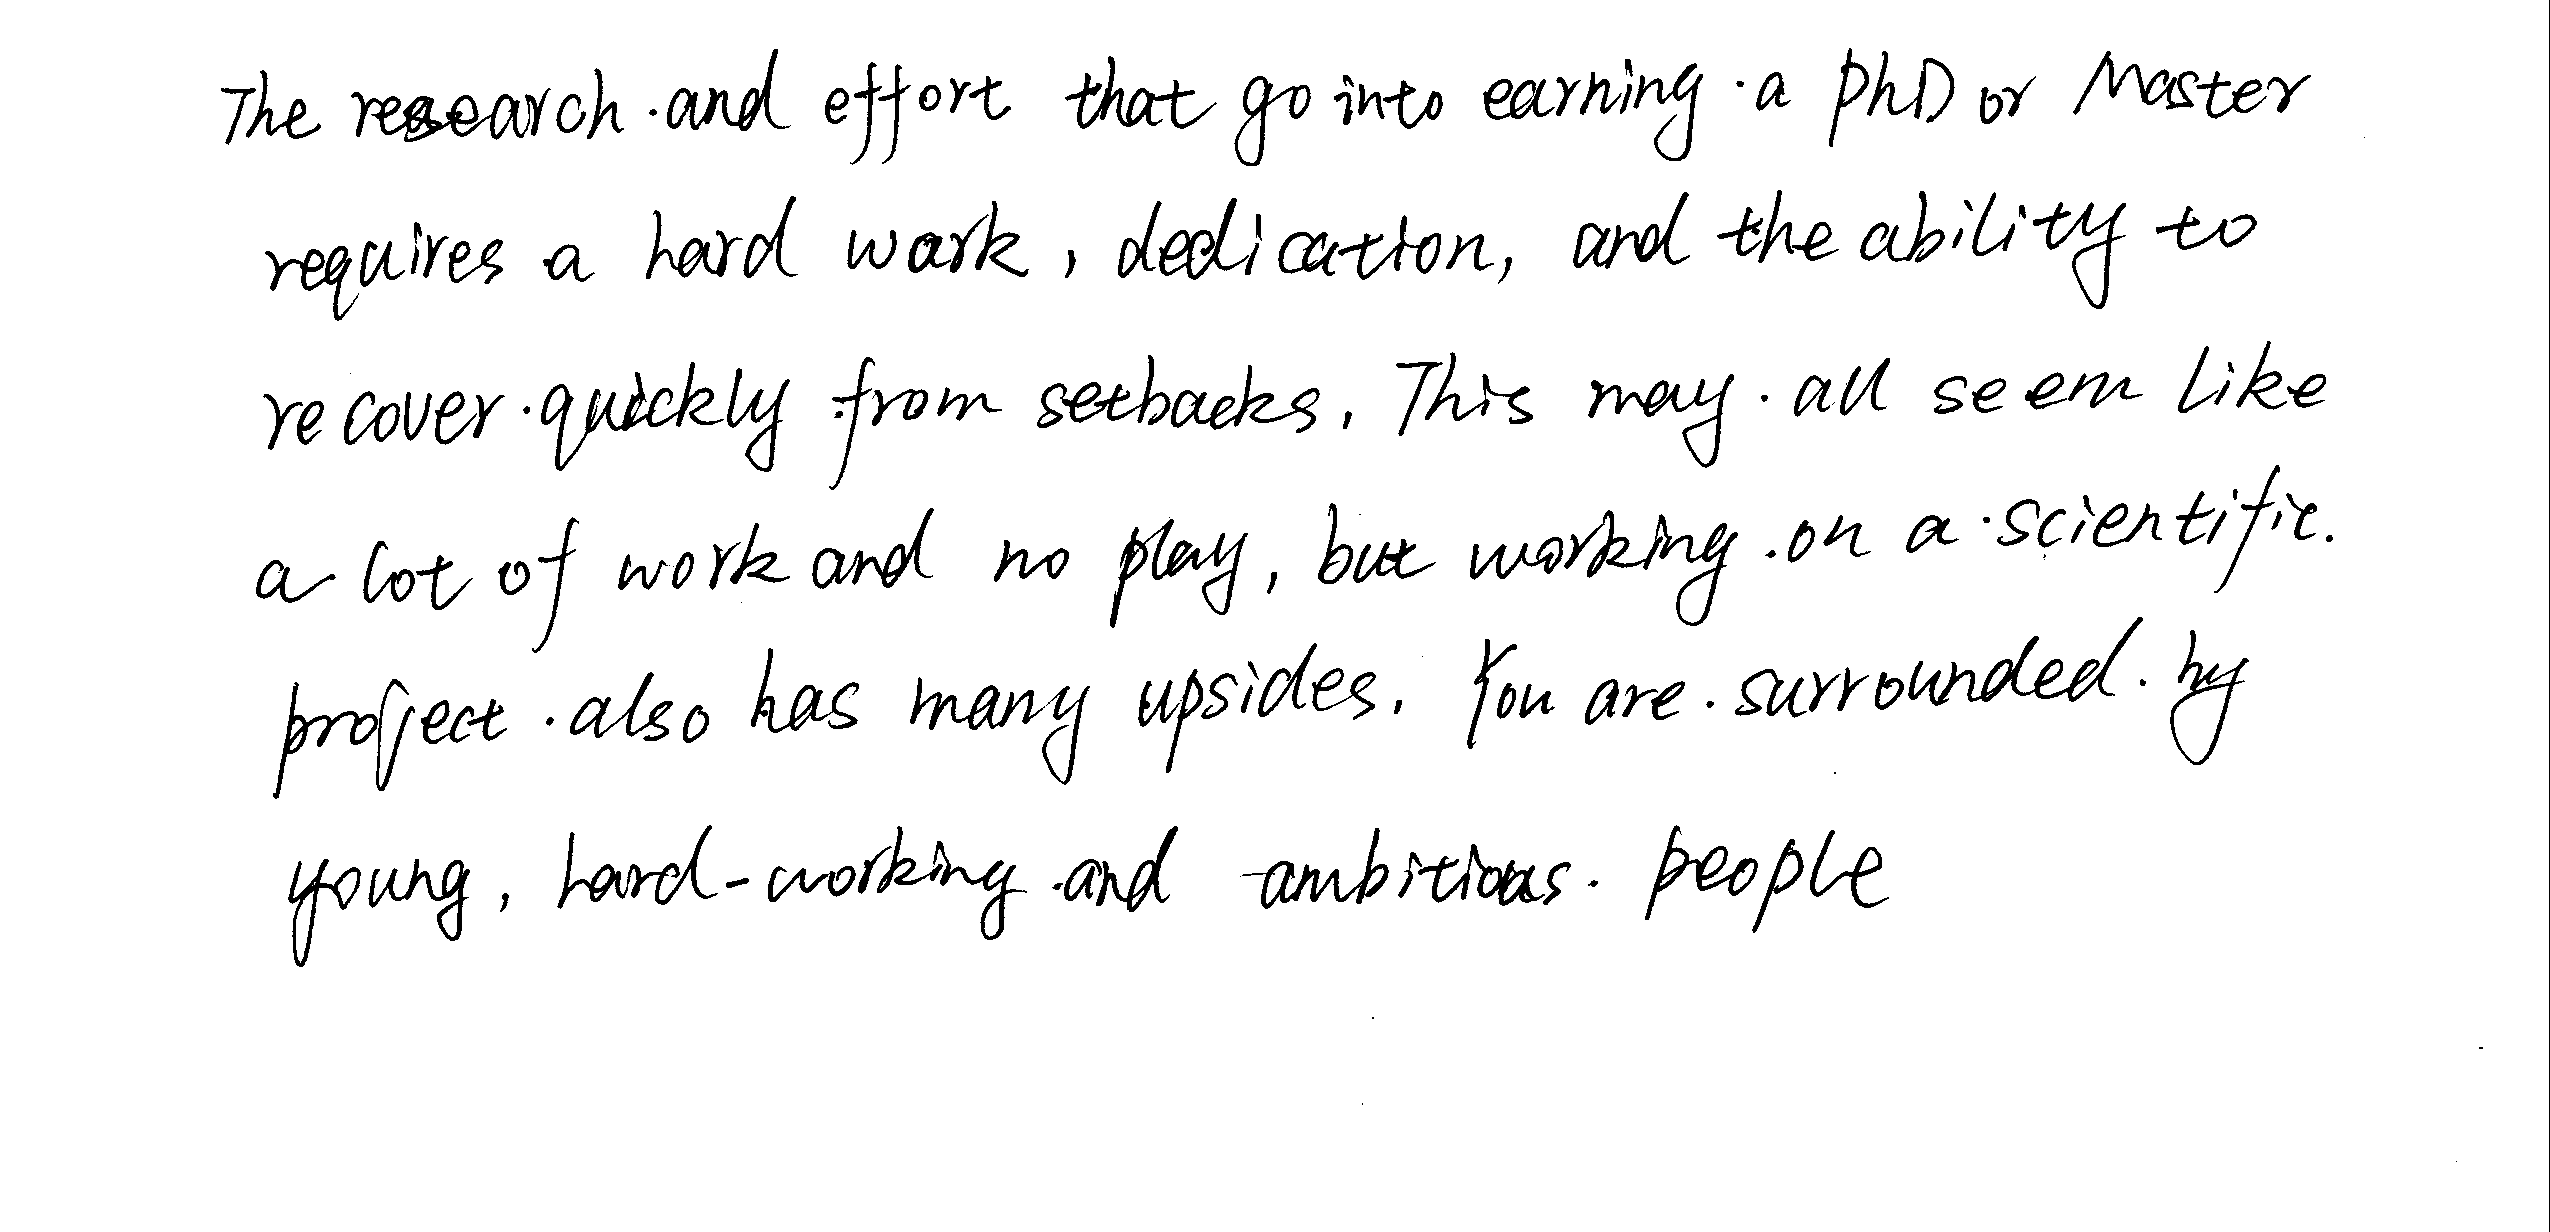 The research and effort that go into earning a PhD or Master
requires a hard work, dedication, and the ability to
recover quickly from setbacks. This may all seem like
a lot of work and no play, but working on a scientific
project also has many upsides. You are surrounded by
young, hard-working and ambitious people